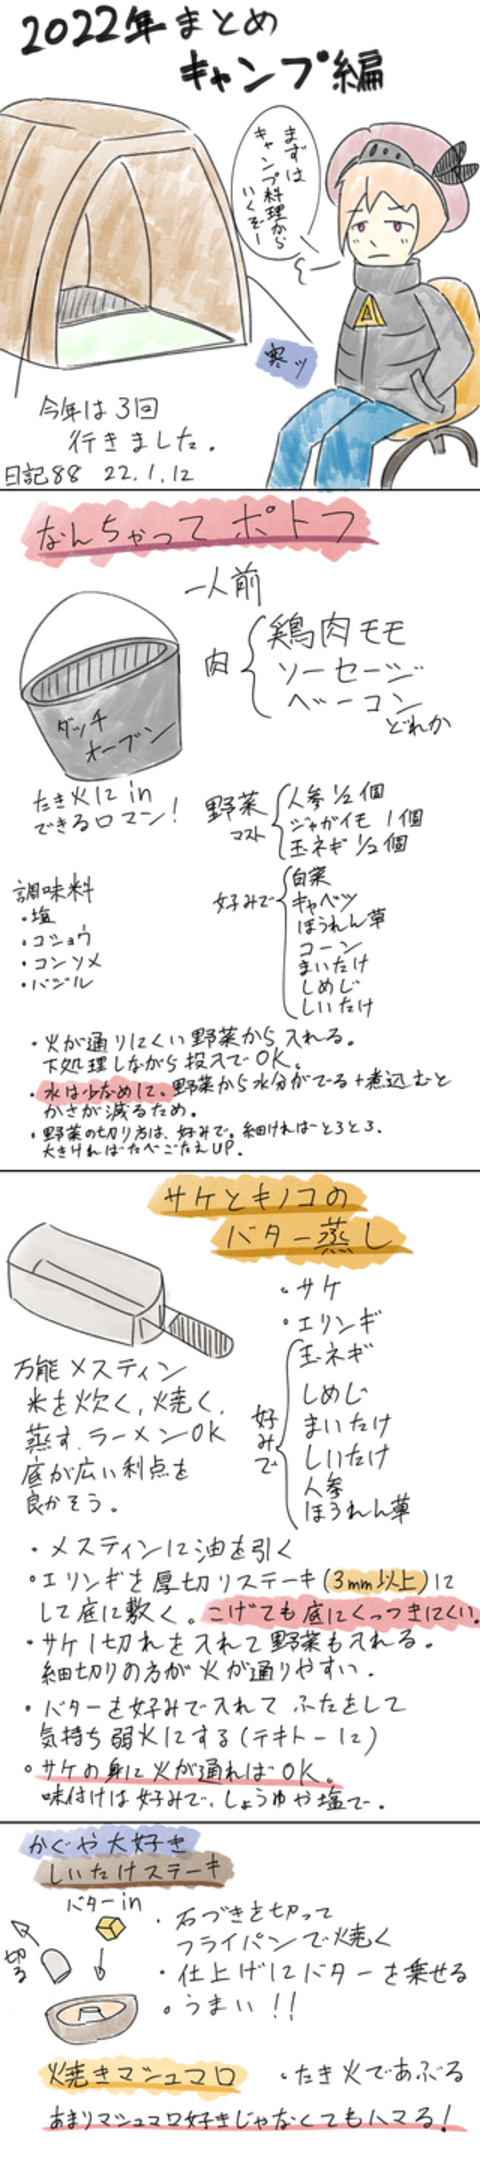 2022年まとめ
キャンプ編
まずは
キャンプ料理から
いくぞー
寒ッ
今年は3回
行きました。
日記88 22.1.12
なんちゃってポトフ
一人前
肉
鶏肉モモ
ソーセージ
ベーコン
どれか
ダッチ
オーブン
たき火にin
できるロマン!
野菜
マスト
人参1/2個
ジャガイモ 1個
玉ネギ 1/2個
好みで
白菜
キャベツ
ほうれん草
コーン
まいたけ
しめじ
しいたけ
調味料
・塩
・コショウ
・コンソメ
・バジル
・火が通りにくい野菜から入れる。
下処理しながら投入でOK。
・水は少なめして、野菜から水分がでる+煮込むと
かさが減るため。
・野菜の切り方は、好みで。細ければとろとろ。
大きければたべごたえUP。
サケとキノコの
バター蒸し
・サケ
・エリンギ
好みで
玉ネギ
しめじ
まいたけ
しいたけ
人参
ほうれん草
万能メスティン
米を炊く、焼く、
蒸す、ラーメンOK
底が広い利点を
良かそう。
・メスティンに油を引く
・エリンギを厚切りステーキ(3mm以上)に
して底に敷く。こげても底にくっつきにくい。
・サケ1切れを入れて野菜も入れる。
細切りの方が火が通りやすい。
・バターを好みで入れて ふたをして
気持ち弱火にする(テキトーに)
・サケの身に火が通ればOK。
味付けは好みで、しょうゆや塩で。
かぐや大好き
しいたけステーキ
バターin
切る
・石づきを切って
フライパンで焼く
・仕上げにバターを乗せる
・うまい!!
焼きマシュマロ
・たき火であぶる
あまりマシュマロ好きじゃなくてもハマる!